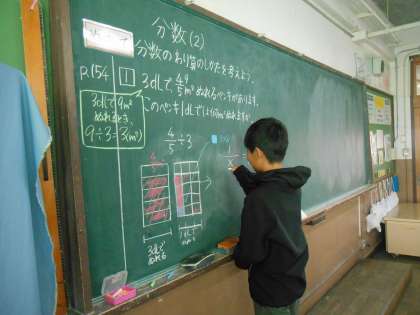 分数(2)
分数のわり算のしかたを考えよう。
p.154
1 3dLで、4/5m²ぬれるペンキがあります。
このペンキ1dLでは何m²ぬれますか。
3dLで9m²
ぬれるとき、
9÷3=3(m²)
4/5÷3
3dLで
ぬれる
1dLで
ぬれる